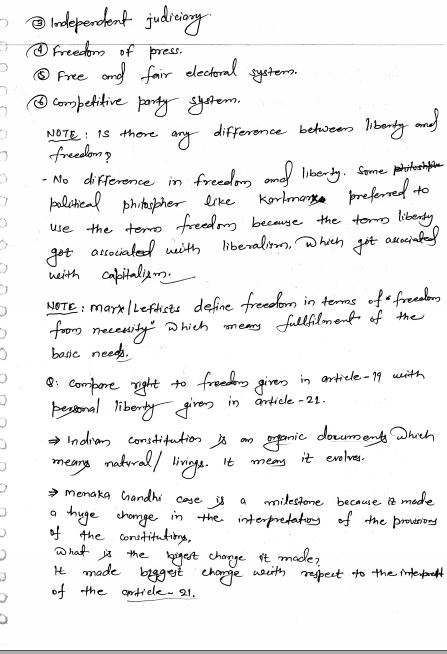 ③ Independent judiciary.
④ Freedom of press.
⑤ Free and fair electoral system.
⑥ Competitive party system.
NOTE: Is there any difference between liberty and
freedom?
- No difference in freedom and liberty. Some
political philospher like Karlmarx preferred to
use the term freedom because the term liberty
got associated with liberalism, which got associated
with capitalism.
NOTE: marx/Leftists define freedom in terms of "freedom
from necessity" which means fullfilment of the
basic needs.
Q: Compare right to freedom given in article-19 with
personal liberty given in article-21.
⇒ Indian constitution is an organic documents which
means natural/livings. It means it evolves.
⇒ Menaka Gandhi case is a milestone because it made
a huge change in the interpretations of the provisions
of the constitutions.
What is the bigest change it made?
It made biggest change with respect to the
of the article-21.